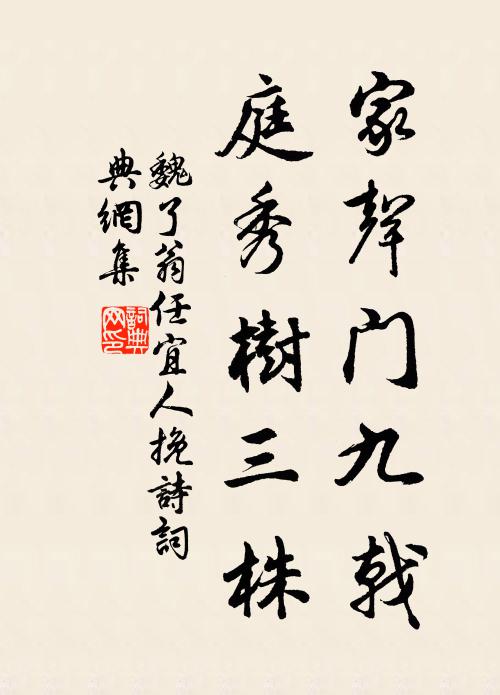 家聲門九戟
庭秀樹三株
魏了翁任宜人挽詩詞
典網集
詞典
网印